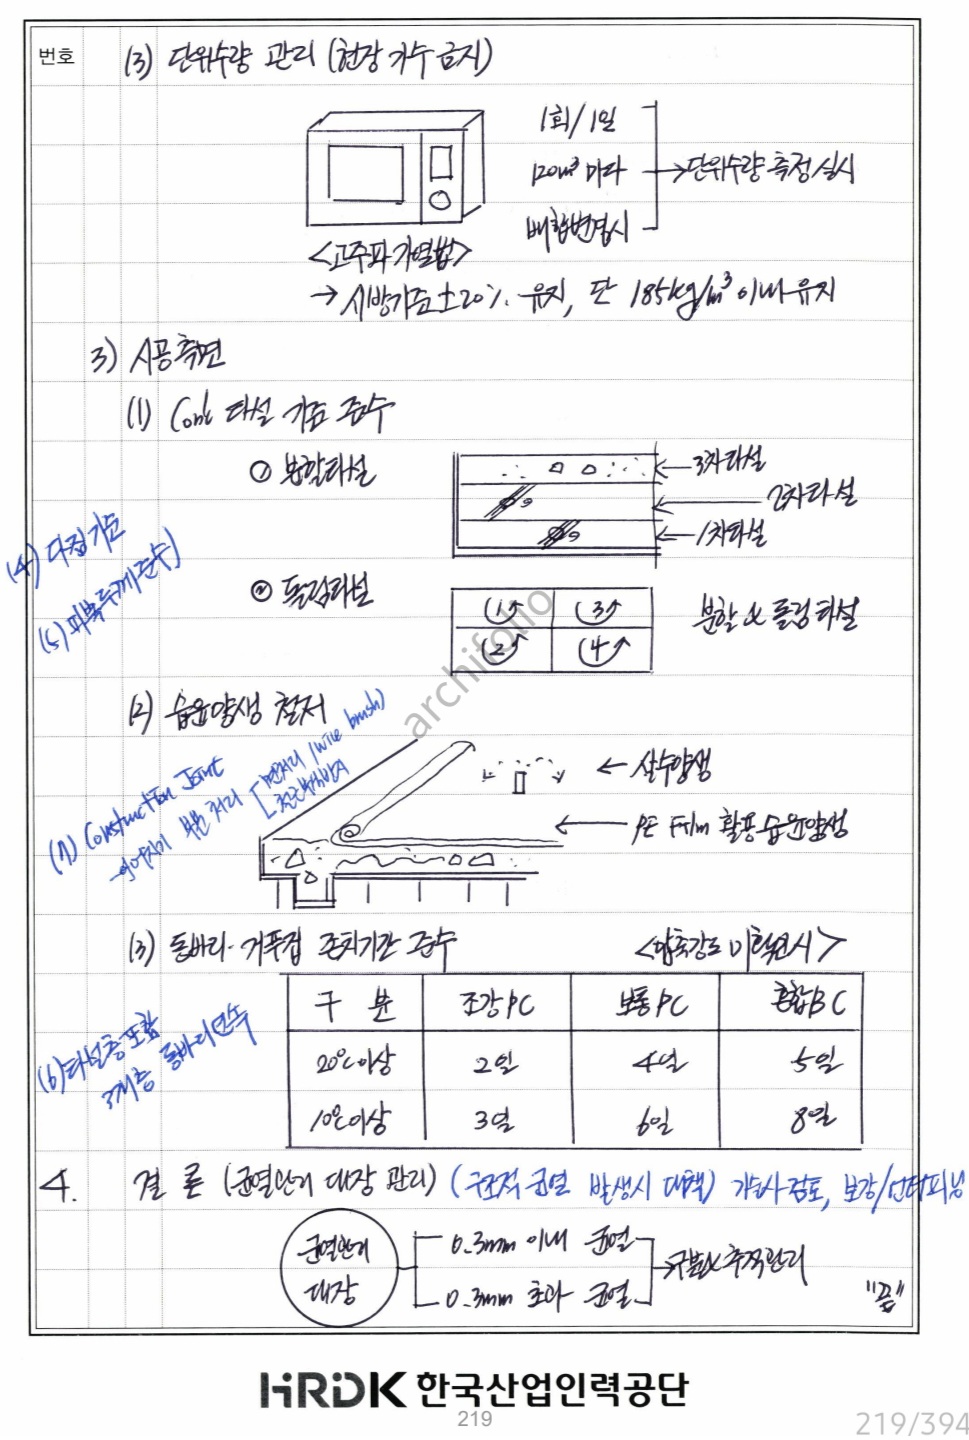 번호
(3) 단위수량 관리 (현장 가수 금지)
1회/1일
120m³ 마다
→단위수량 측정실시
배합변경시
<고주파 가열법>
→ 시방기준±20% 유지, 단 185kg/m³ 이내 유지
3) 시공측면
(1) Conc 타설 기준 준수
① 분할타설
←3차타설
←2차타설
←1차타설
(4) 다짐기준
(5) 피복두께준수)
② 돌림타설
1 3
2 4
분할 & 돌림 타설
(2) 습윤양생 철저
(7) Construction Joint
→이어치기 부분 처리
면처리 (wire brush)
← 살수양생
← PE Film 활용 습윤양생
(3) 동바리·거푸집 존치기간 준수
<압축강도 미확인시>
구 분 조강PC 보통PC 혼합BC
20℃이상 2일 4일 5일
10℃이상 3일 6일 8일
(6) 타설층 포함
3개층 동바리 연속
4. 결 론 (균열관리 대장 관리) (구조적 균열 발생시 대책) 기술사 검토, 보강/언더피닝
균열관리
대장
0.3mm 이내 균열
0.3mm 초과 균열
→구분& 추적관리
"끝"
archifolio
HRDK 한국산업인력공단
219
219/394